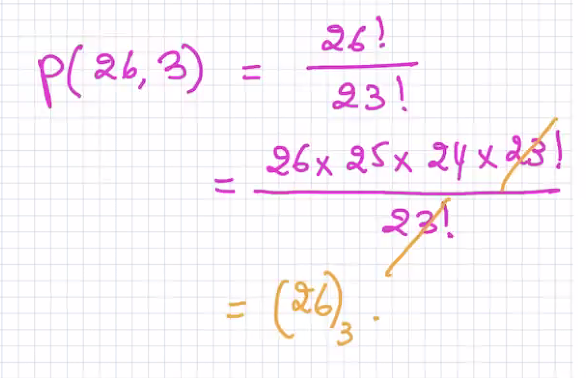 P(26, 3) = 26! / 23!
= 26 × 25 × 24 × 23! / 23!
= (26)₃ .